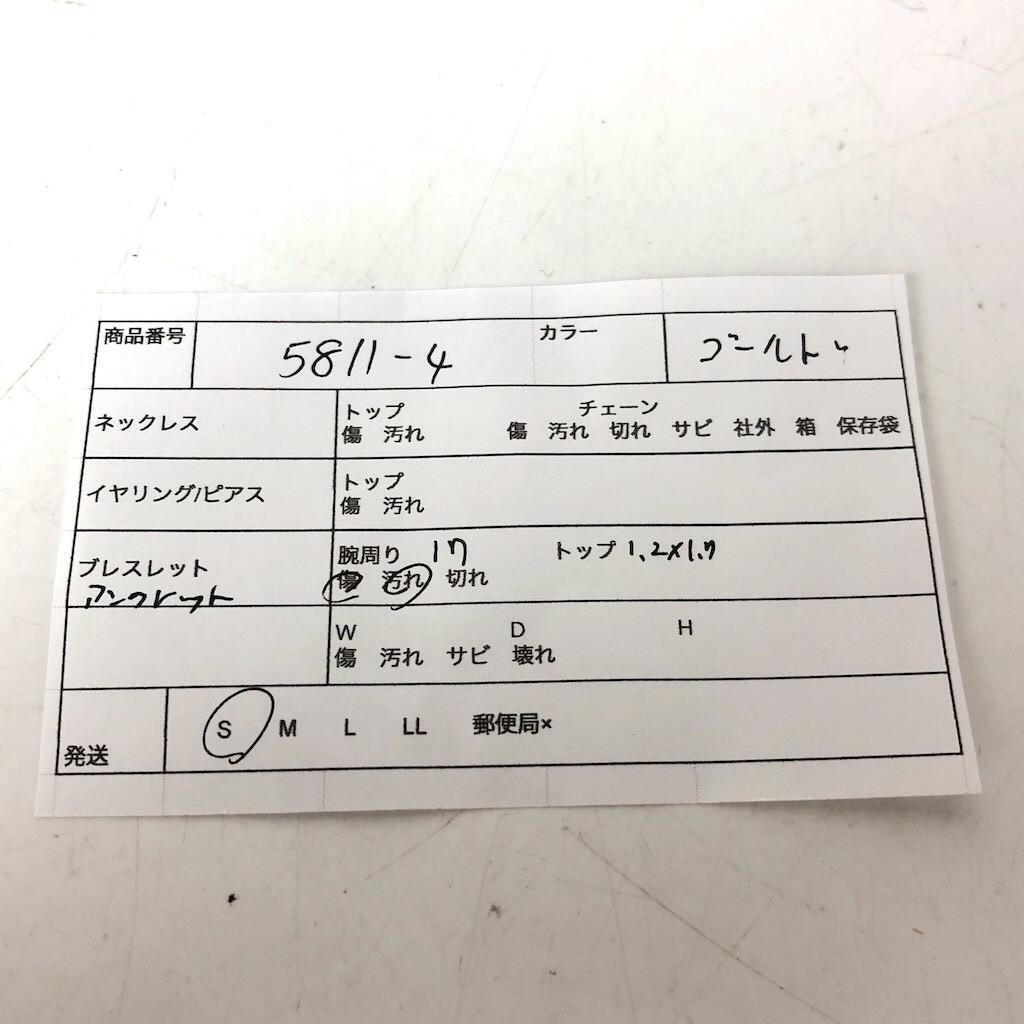 商品番号 5811-4 カラー ゴールド
ネックレス トップ チェーン
傷 汚れ 傷 汚れ 切れ サビ 社外 箱 保存袋
イヤリング/ピアス トップ
傷 汚れ
ブレスレット 腕周り 17 トップ 1.2×1.7
アンクレット 傷 汚れ 切れ
W D H
傷 汚れ サビ 壊れ
発送 S M L LL 郵便局×